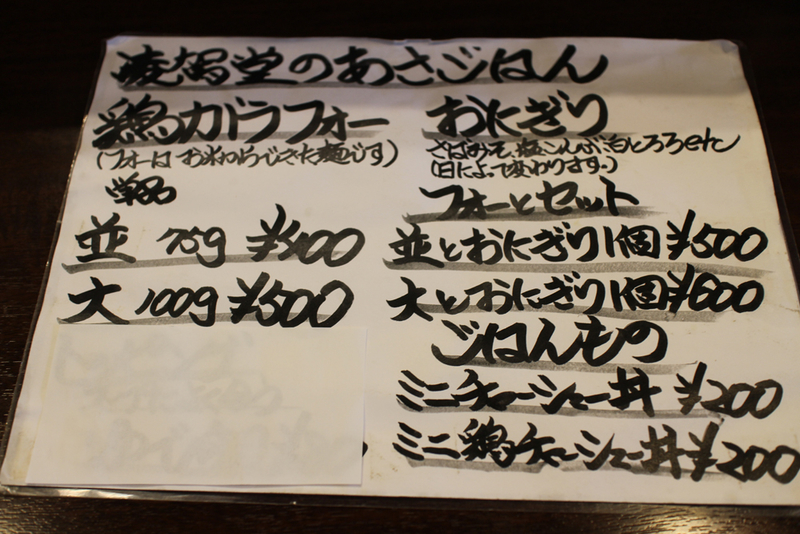 凌駕堂のあさごはん
鶏ガラフォー
(フォーは お米からできた麺です)
単品
並 75g ¥400
大 100g ¥500
おにぎり
さばみそ、塩こんぶ、白とろろetc
(日によって変わります。)
フォーとセット
並とおにぎり1個 ¥500
大とおにぎり1個 ¥600
ごはんもの
ミニチャーシュー丼 ¥200
ミニ鶏チャーシュー丼 ¥200